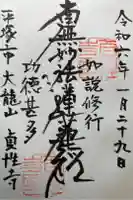 令和六年一月二十九日
如説修行
南無妙法蓮華經
功徳甚多
平塚市 大龍山 貞性寺